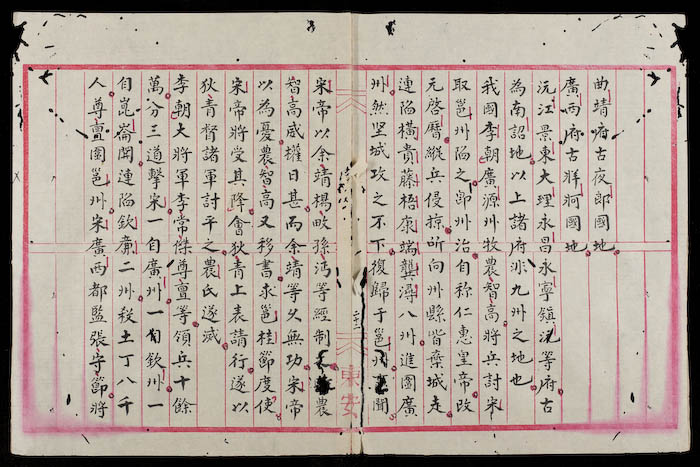 曲靖府古夜郎國地
廣西府古牂牁國地
沅江景東大理永昌永寧鎮沅等府古
為南詔地以上諸府非九州之地也
我國李朝廣源州牧農智高將兵討宋
取邕州陷之即州治自称仁惠皇帝改
元啓曆縱兵侵掠所向州縣皆棄城走
連陷橫貴藤梧康端龔潯八州進圍廣
州然坚城攻之不下復歸于邕州聞
宋帝以余靖楊畋孫沔等經制農
智高威權日甚而余靖等久無功宋帝
以為憂農智高又移書求邕桂節度使
宋帝將受其降會狄青上表請行遂以
狄青督諸軍討平之農氏遂滅
李朝大將軍李常傑尊亶等領兵十餘
萬分三道擊宋一自廣州一自欽州一
自崑崙関連陷欽廉二州殺土丁八千
人尊亶圍邕州宋廣西都監張守節將
東安